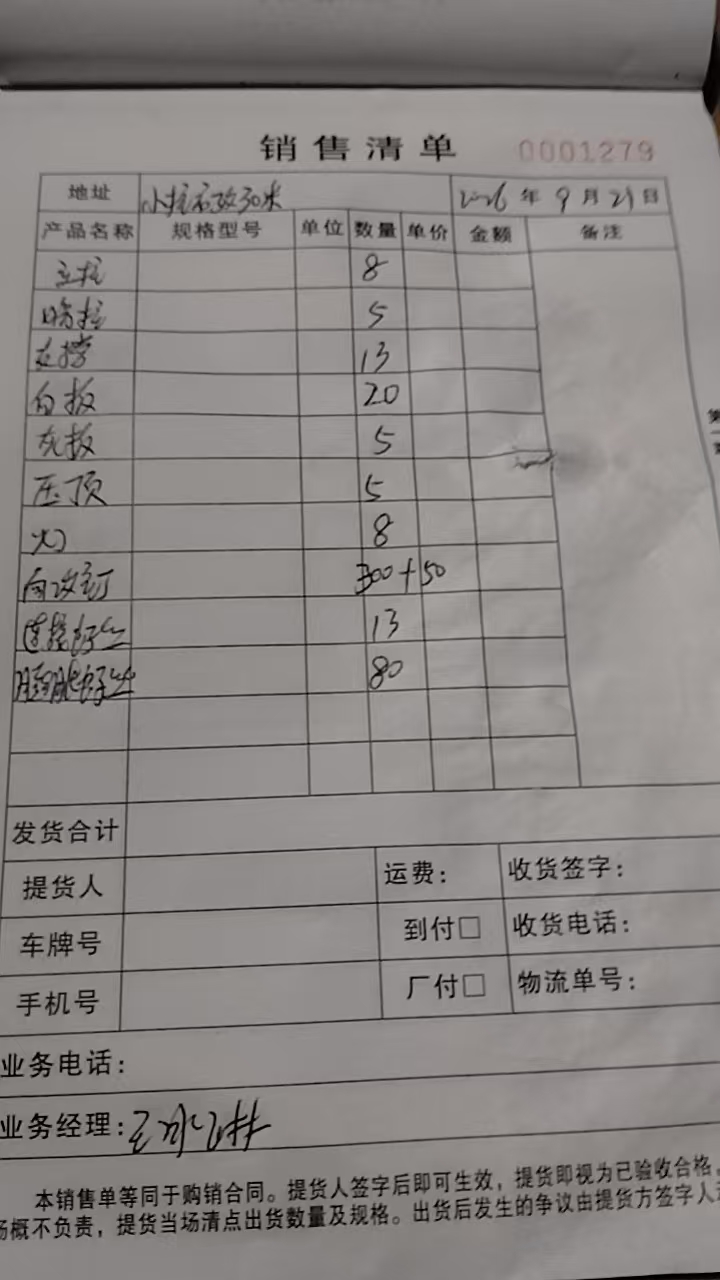 销售清单 0001279
地址 2026年9月21日
产品名称 规格型号 单位 数量 单价 金额 备注
立柱 8
5
支撑 13
白板 20
灰板 5
压顶 5
8
300+50
连接好丝 13
80
发货合计
提货人 运费: 收货签字:
车牌号 到付□ 收货电话:
手机号 厂付□ 物流单号:
业务电话:
业务经理:
本销售单等同于购销合同。提货人签字后即可生效，提货即视为已验收合格，
概不负责，提货当场清点出货数量及规格。出货后发生的争议由提货方签字人